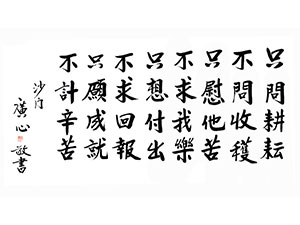 只問耕耘
不問收穫
只慰他苦
不求我樂
只想付出
不求回報
只願成就
不計辛苦
沙门
廣心敬書